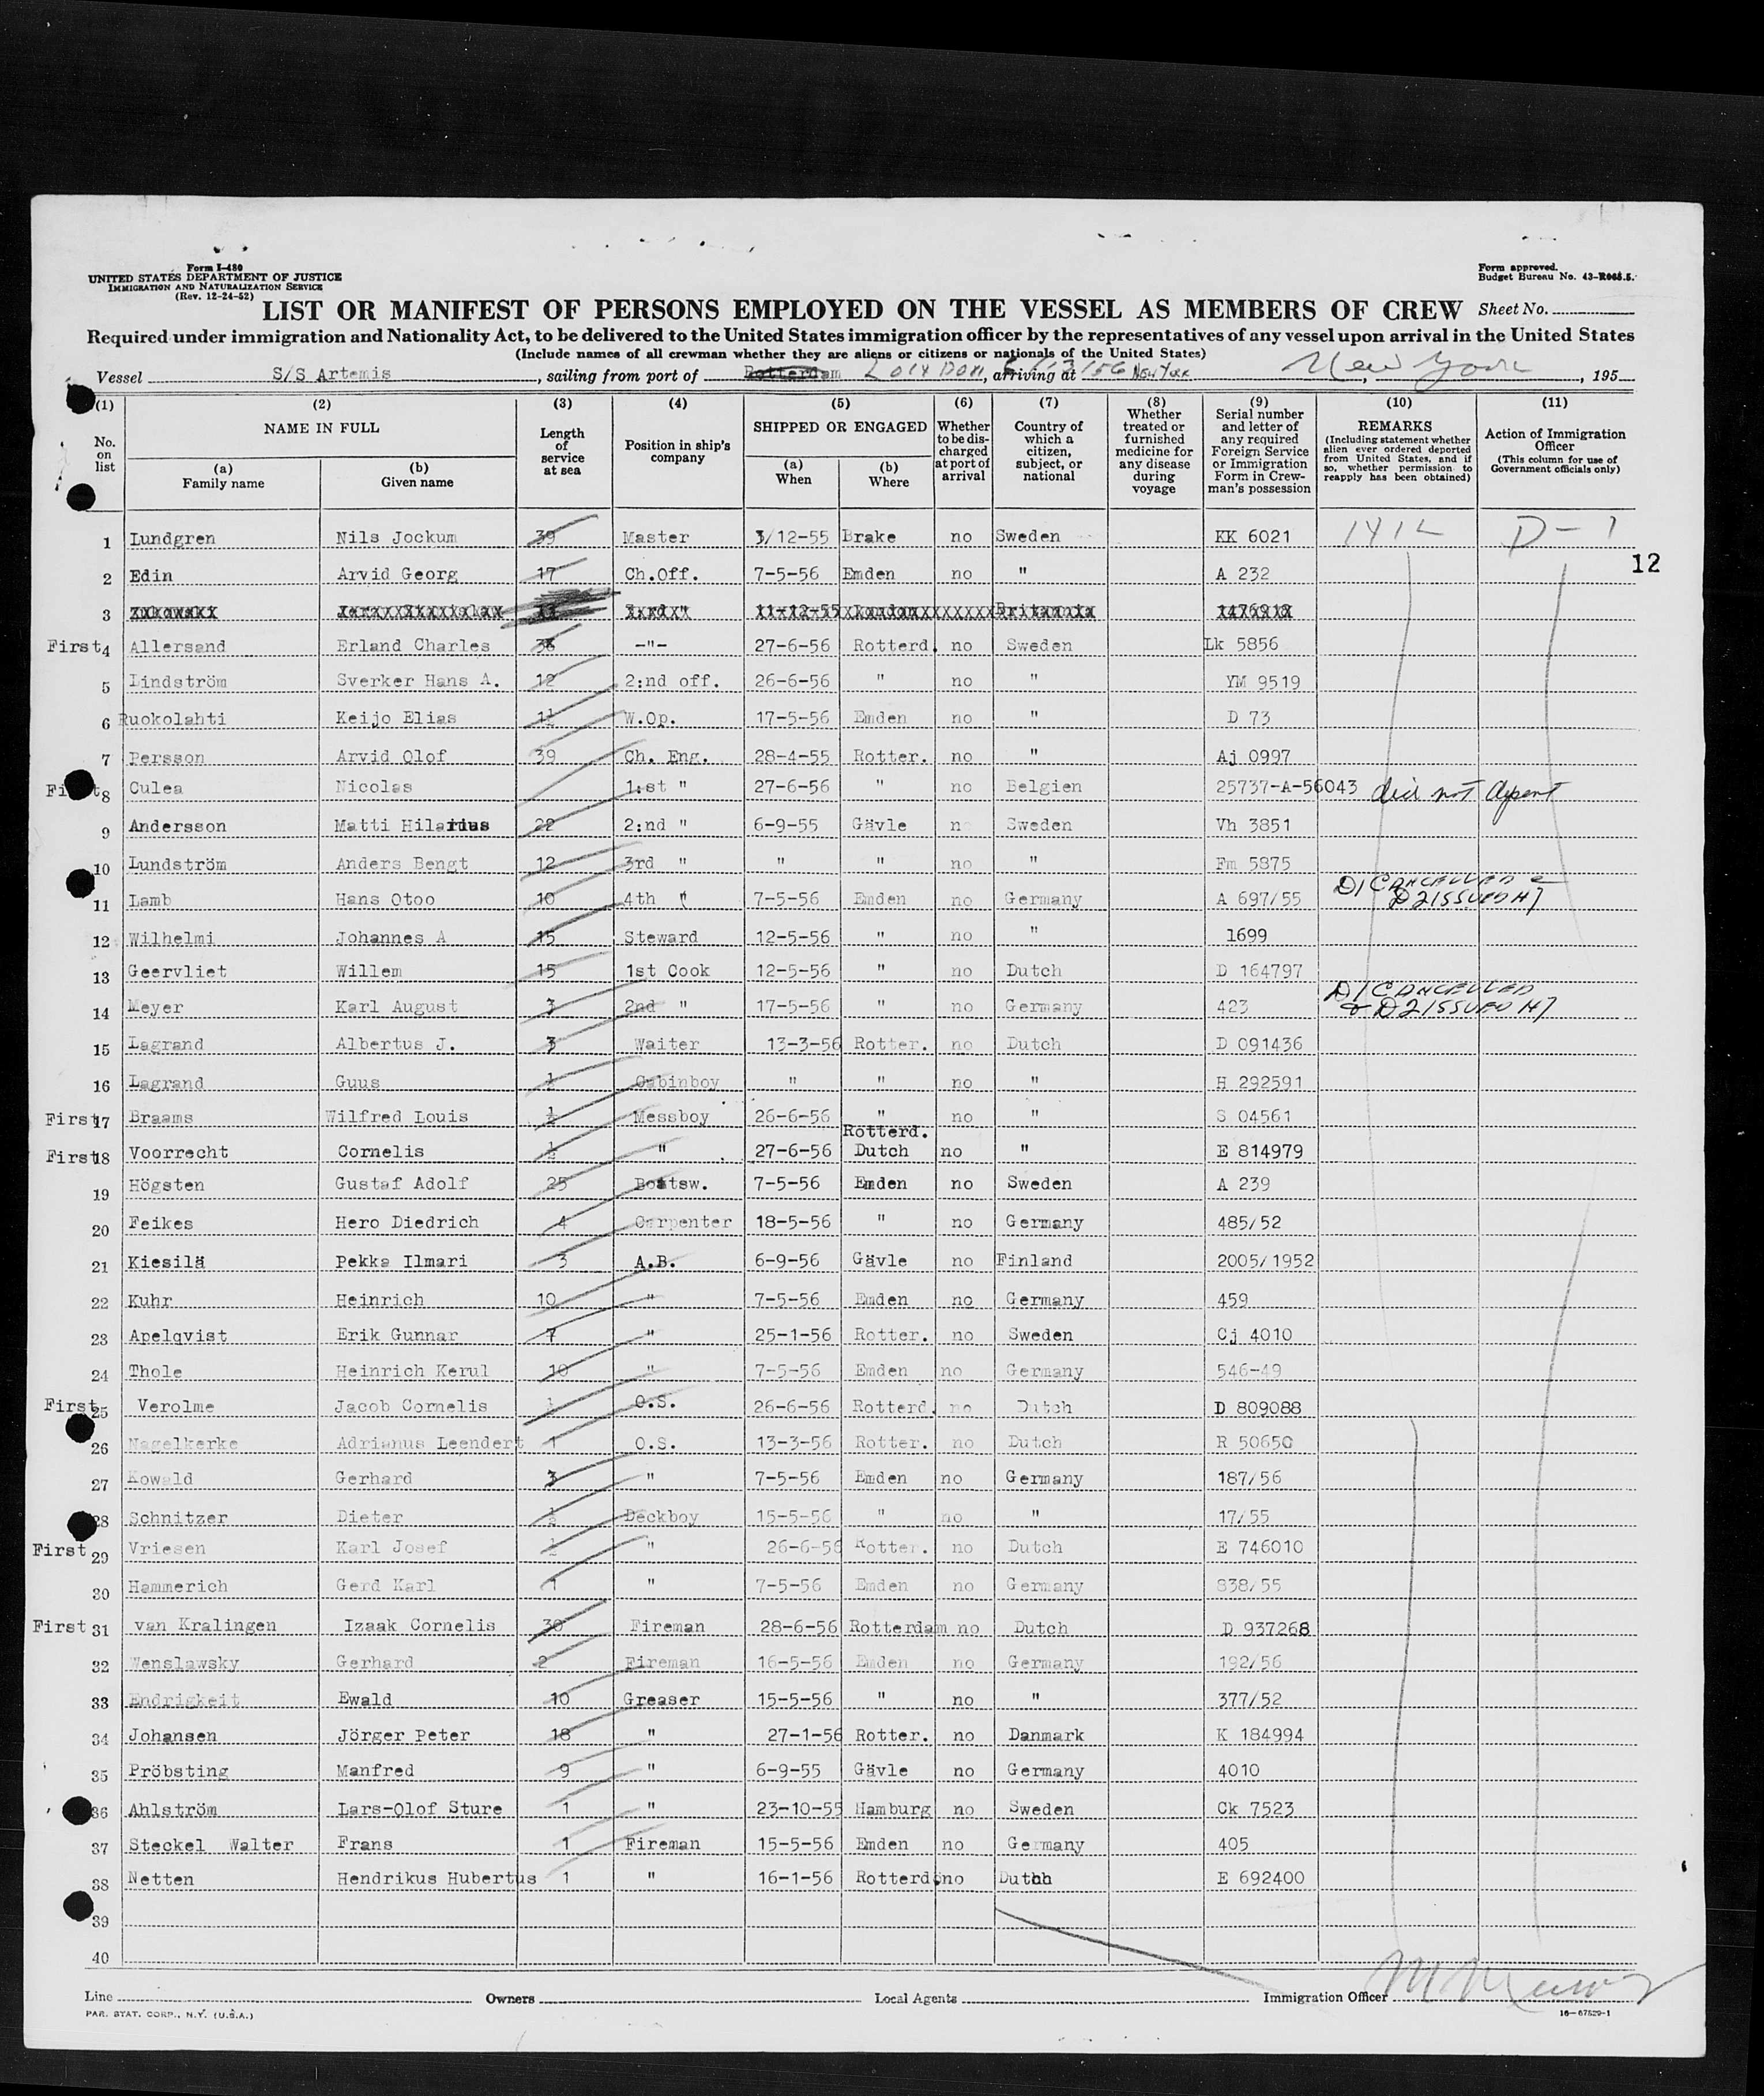 Form I-480
UNITED STATES DEPARTMENT OF JUSTICE
IMMIGRATION AND NATURALIZATION SERVICE
(Rev. 12-24-52)
Form approved.
Budget Bureau No. 43-R065.5.
LIST OR MANIFEST OF PERSONS EMPLOYED ON THE VESSEL AS MEMBERS OF CREW Sheet No.
Required under immigration and Nationality Act, to be delivered to the United States immigration officer by the representatives of any vessel upon arrival in the United States
(Include names of all crewman whether they are aliens or citizens or nationals of the United States)
Vessel S/S Artemis, sailing from port of Rotterdam London, arriving at New York New York, 195
(1) No. on list
(2) NAME IN FULL (a) Family name (b) Given name
(3) Length of service at sea
(4) Position in ship's company
(5) SHIPPED OR ENGAGED (a) When (b) Where
(6) Whether to be discharged at port of arrival
(7) Country of which a citizen, subject, or national
(8) Whether treated or furnished medicine for any disease during voyage
(9) Serial number and letter of any required Foreign Service or Immigration Form in Crewman's possession
(10) REMARKS (Including statement whether alien ever ordered deported from United States, and if so, whether permission to reapply has been obtained)
(11) Action of Immigration Officer (This column for use of Government officials only)
1 Lundgren Nils Jockum 39 Master 3/12-55 Brake no Sweden KK 6021 D-1
12
2 Edin Arvid Georg 17 Ch.Off. 7-5-56 Emden no " A 232
3
First 4 Allersand Erland Charles 36 -"- 27-6-56 Rotterd. no Sweden Lk 5856
5 Lindström Sverker Hans A. 12 2:nd off. 26-6-56 " no " YM 9519
6 Ruokolahti Keijo Elias 1½ W.Op. 17-5-56 Emden no " D 73
7 Persson Arvid Olof 39 Ch. Eng. 28-4-55 Rotter. no " Aj 0997
First 8 Culea Nicolas 1:st " 27-6-56 " no Belgien 25737-A-56043 did not
9 Andersson Matti Hilarius 22 2:nd " 6-9-55 Gävle no Sweden Vh 3851
10 Lundström Anders Bengt 12 3rd " " " no " Fm 5875
11 Lamb Hans Otoo 10 4th " 7-5-56 Emden no Germany A 697/55 D1 CANCELLED & D2 ISSUED
12 Wilhelmi Johannes A 15 Steward 12-5-56 " no " 1699
13 Geervliet Willem 15 1st Cook 12-5-56 " no Dutch D 164797
14 Meyer Karl August 3 2nd " 17-5-56 " no Germany 423 D1 CANCELLED & D2 ISSUED
15 Lagrand Albertus J. 3 Waiter 13-3-56 Rotter. no Dutch D 091436
16 Lagrand Guus ½ Cabinboy " " no " H 292591
First 17 Braams Wilfred Louis ½ Messboy 26-6-56 " no " S 04561
First 18 Voorrecht Cornelis ½ " 27-6-56 Rotterd. Dutch no " E 814979
19 Högsten Gustaf Adolf 25 Boatsw. 7-5-56 Emden no Sweden A 239
20 Feikes Hero Diedrich 4 Carpenter 18-5-56 " no Germany 485/52
21 Kiesilä Pekka Ilmari 3 A.B. 6-9-56 Gävle no Finland 2005/1952
22 Kuhr Heinrich 10 " 7-5-56 Emden no Germany 459
23 Apelqvist Erik Gunnar 7 " 25-1-56 Rotter. no Sweden Cj 4010
24 Thole Heinrich Kerul 10 " 7-5-56 Emden no Germany 546-49
First 25 Verolme Jacob Cornelis O.S. 26-6-56 Rotterd. no Dutch D 809088
26 Nagelkerke Adrianus Leendert 1 O.S. 13-3-56 Rotter. no Dutch R 50650
27 Kowald Gerhard 3 " 7-5-56 Emden no Germany 187/56
28 Schnitzer Dieter ½ Deckboy 15-5-56 " no " 17/55
First 29 Vriesen Karl Josef ½ " 26-6-56 Rotter. no Dutch E 746010
30 Hammerich Gerd Karl 1 " 7-5-56 Emden no Germany 838/55
First 31 van Kralingen Izaak Cornelis 30 Fireman 28-6-56 Rotterdam no Dutch D 937268
32 Wenslawsky Gerhard 2 Fireman 16-5-56 Emden no Germany 192/56
33 Endrigkeit Ewald 10 Greaser 15-5-56 " no " 377/52
34 Johansen Jörger Peter 18 " 27-1-56 Rotter. no Danmark K 184994
35 Pröbsting Manfred 9 " 6-9-55 Gävle no Germany 4010
36 Ahlström Lars-Olof Sture 1 " 23-10-55 Hamburg no Sweden Ck 7523
37 Steckel Walter Frans 1 Fireman 15-5-56 Emden no Germany 405
38 Netten Hendrikus Hubertus 1 " 16-1-56 Rotterd no Dutch E 692400
39
40
Line Owners Local Agents Immigration Officer
PAR. STAT. CORP., N.Y. (U.S.A.)
16—67529-1